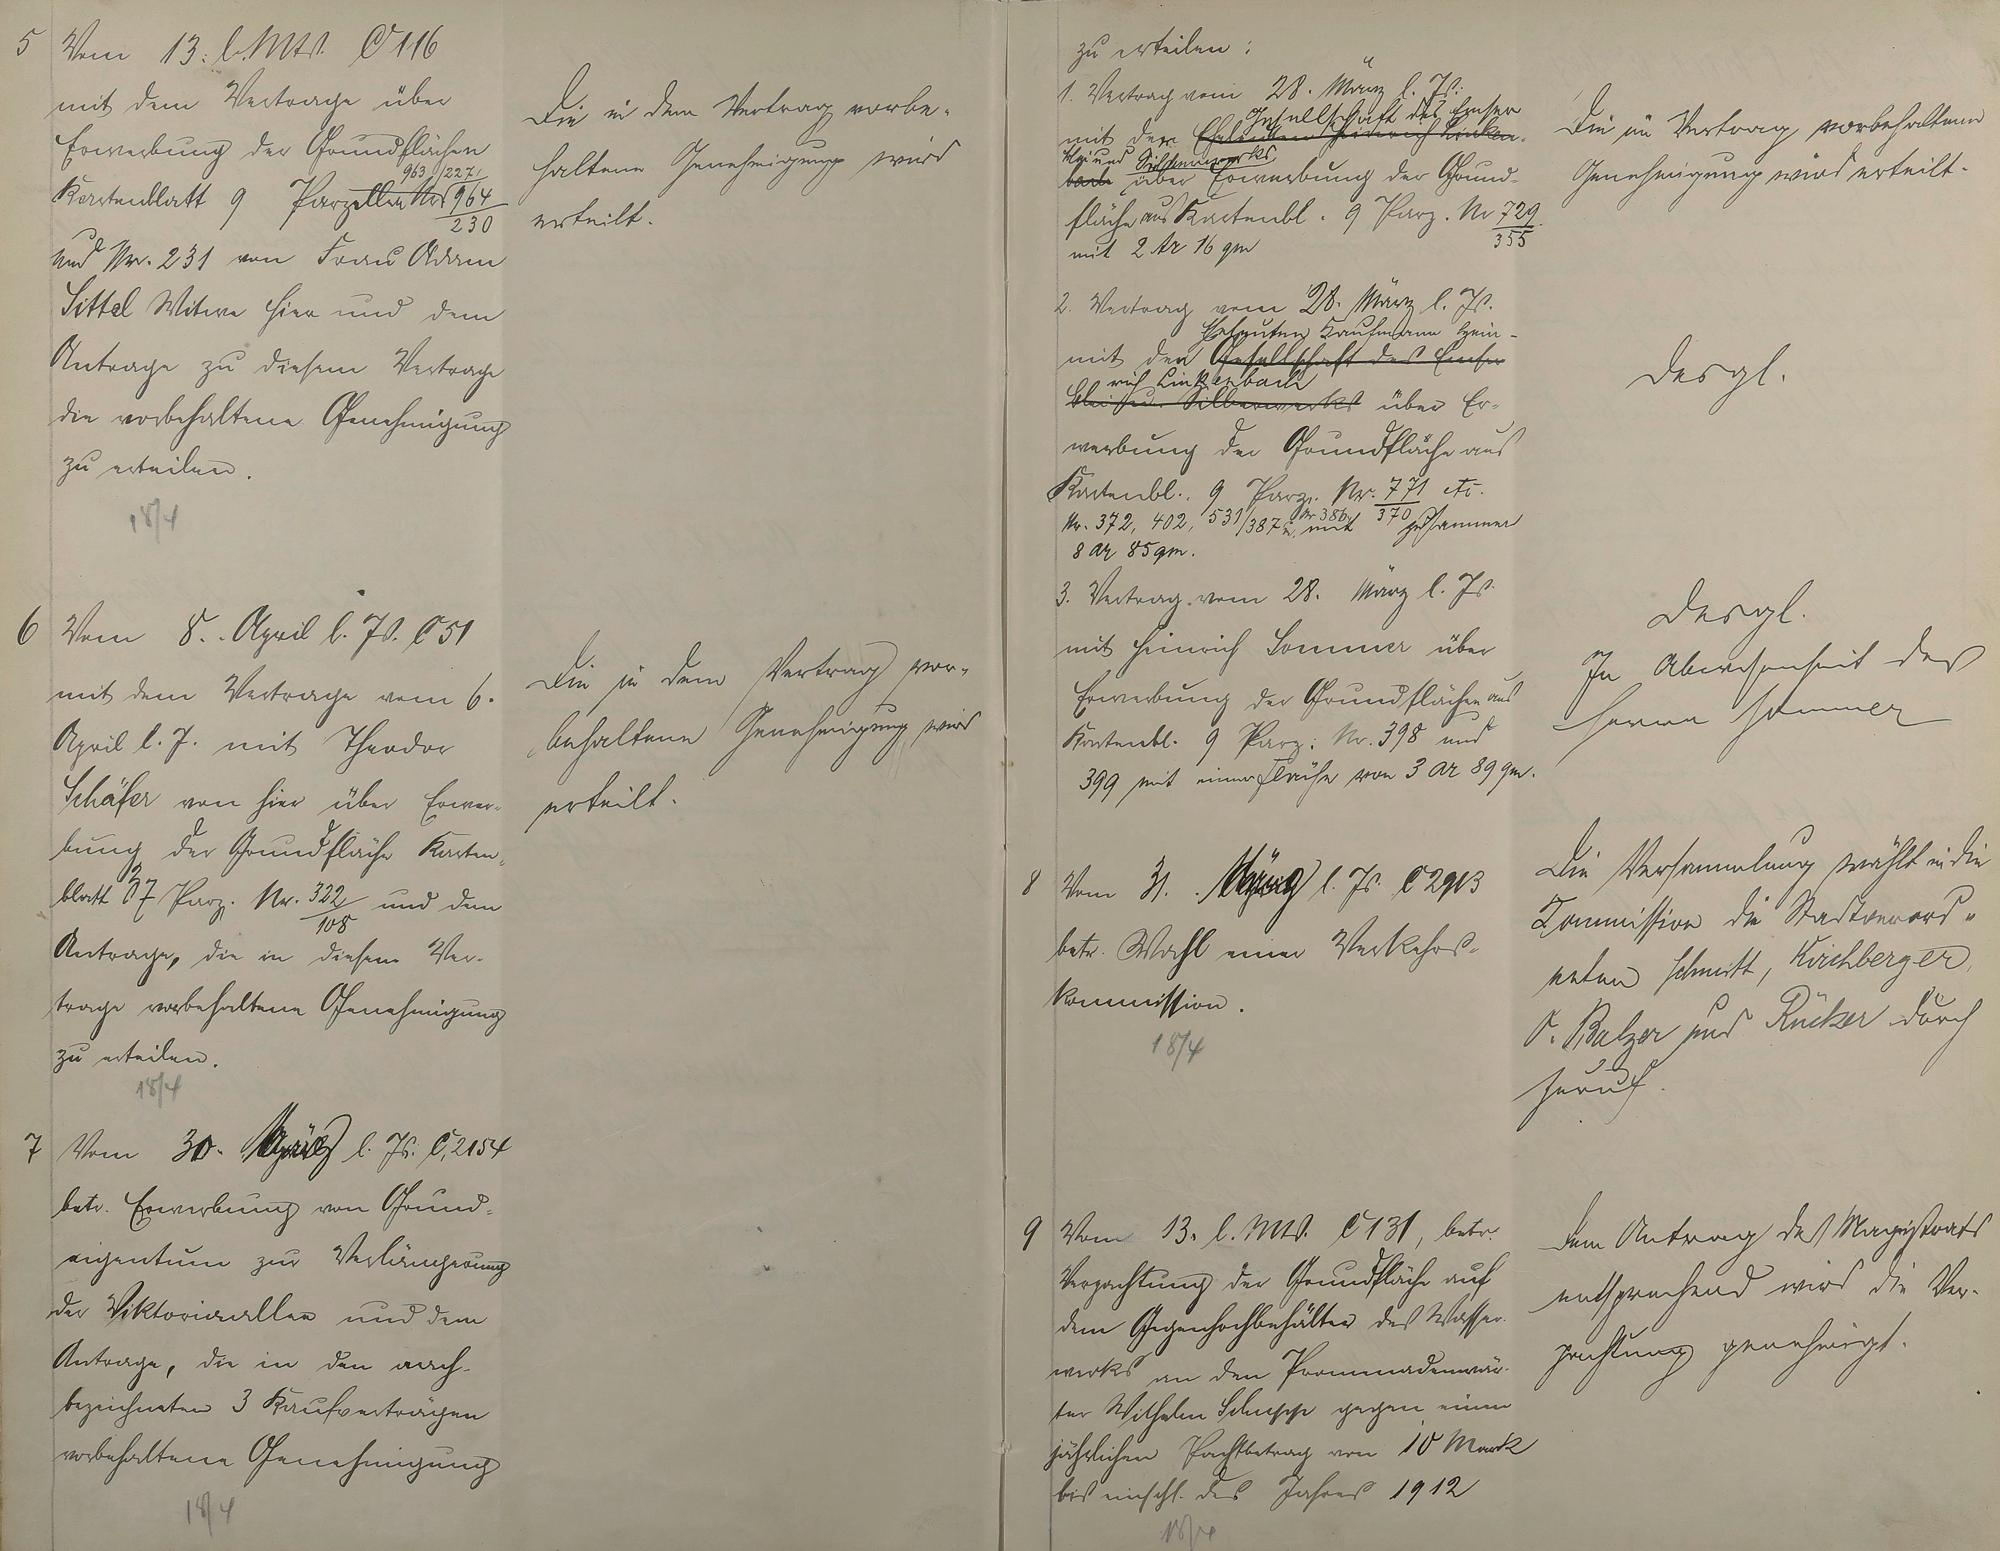 5 Vom 13. l. Mts. C 116
mit dem Vertrage über
Erwerbung der Grundflächen
963/227,
Kartenblatt 9 Parzellen Nrs 964/230
und Nr. 231 von Frau Adam
Sittel Witwe hier und dem
Antrage zu diesem Vertrage
die vorbehaltene Genehmigung
zu erteilen.
18/4
Die in dem Vertrag vorbe-
haltene Genehmigung wird
erteilt.
6 Vom 8. April l. Js. C 51
mit dem Vertrage vom 6.
April l. J. mit Theodor
Schäfer von hier über Erwer-
bung der Grundfläche Karten-
blatt 37 Parz. Nr. 322/108 und dem
Antrage, die in diesem Ver-
trage vorbehaltene Genehmigung
zu erteilen.
18/4
Die in dem Vertrag vor-
behaltene Genehmigung wird
erteilt.
7 Vom 30. l. Js. C 2154
betr. Erwerbung von Grund-
eigentum zur Verlängerung
der Viktoriaallee und dem
Antrage, die in den nach-
bezeichneten 3 Kaufverträgen
vorbehaltene Genehmigung
18/4
zu erteilen:
1. Vertrag vom 28. März l. Js.
Gesellschaft des Emser
mit den Eheleuten Heinrich Linken-
Blei und Silberwerks
bach über Erwerbung der Grund-
fläche aus Kartenbl. 9 Parz. Nr 729/355
mit 2 Ar 16 qm
Die im Vertrag vorbehaltene
Genehmigung wird erteilt.
2. Vertrag vom 28. März l. Js.
Eheleuten Kaufmann Hein-
mit der Gesellschaft des Emser
rich Linkenbach
Blei u. Silberwerks über Er-
werbung der Grundfläche aus
Kartenbl. 9 Parz. Nr. 771/370 etc.
Nr. 372, 402, 531/387 u. Nr 386 mit zusammen
8 Ar 85 qm.
Desgl.
3. Vertrag vom 28. März l. Js.
mit Heinrich Sommer über
Erwerbung der Grundflächen aus
Kartenbl. 9 Parz. Nr. 398 und
399 mit einer Fläche von 3 Ar 89 qm.
Desgl.
In Abwesenheit des
Herrn Sommer
8 Vom 31. März l. Js. C
betr. Wahl einer Verkehrs-
kommission.
18/4
Die Versammlung wählt in die
Kommission die Stadtverord-
neten Schmitt, Kirchberger,
O. Balzer und Rücker durch
Zuruf.
9 Vom 13. l. Mts. C 131, betr.
Verpachtung der Grundfläche auf
dem Gegenhochbehälter des Wasser-
werks an den Promenadenwär-
ter Wilhelm gegen einen
jährlichen Pachtbetrag von 10 Mark
bis einschl. des Jahres 1912
18/4
Dem Antrag des Magistrats
entsprechend wird die Ver-
pachtung genehmigt.